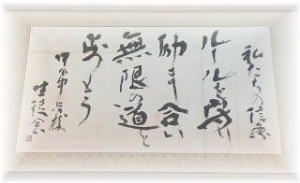 私たちの信条
ルールを守り
励まし合い
無限の道を
歩もう
生徒会